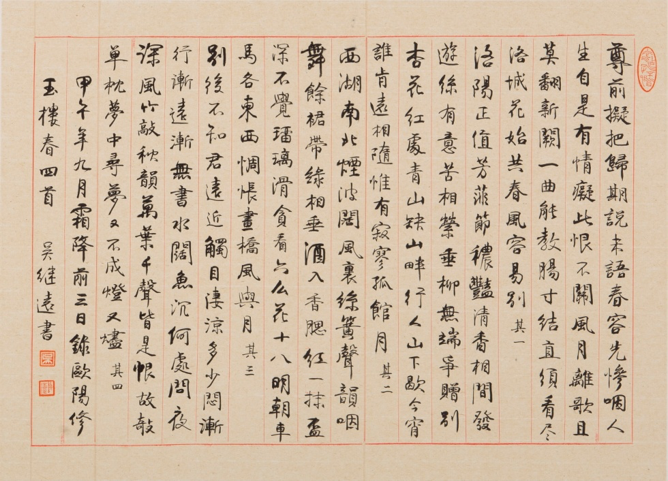 尊前擬把歸期說未語春容先慘咽人
生自是有情癡此恨不關風月離歌且
莫翻新闋一曲能教腸寸結直須看盡
洛城花始共春風容易別 其一
洛陽正值芳菲節穠豔清香相間發
遊絲有意苦相縈垂柳無端爭贈別
杏花紅處青山缺山畔行人山下歇今宵
誰肯遠相隨惟有寂寥孤館月 其二
西湖南北煙波闊風裏絲簧聲韻咽
舞餘裙帶綠相垂酒入香腮紅一抹盃
深不覺璢璃滑貪看六么花十八明朝車
馬各東西惆悵畫橋風與月 其三
別後不知君遠近觸目淒涼多少悶漸
行漸遠漸無書水闊魚沉何處問夜
深風竹敲秋韻萬葉千聲皆是恨故敧
單枕夢中尋夢又不成燈又燼 其四
甲午年九月霜降前三日錄歐陽修
玉樓春四首 吳继遠書